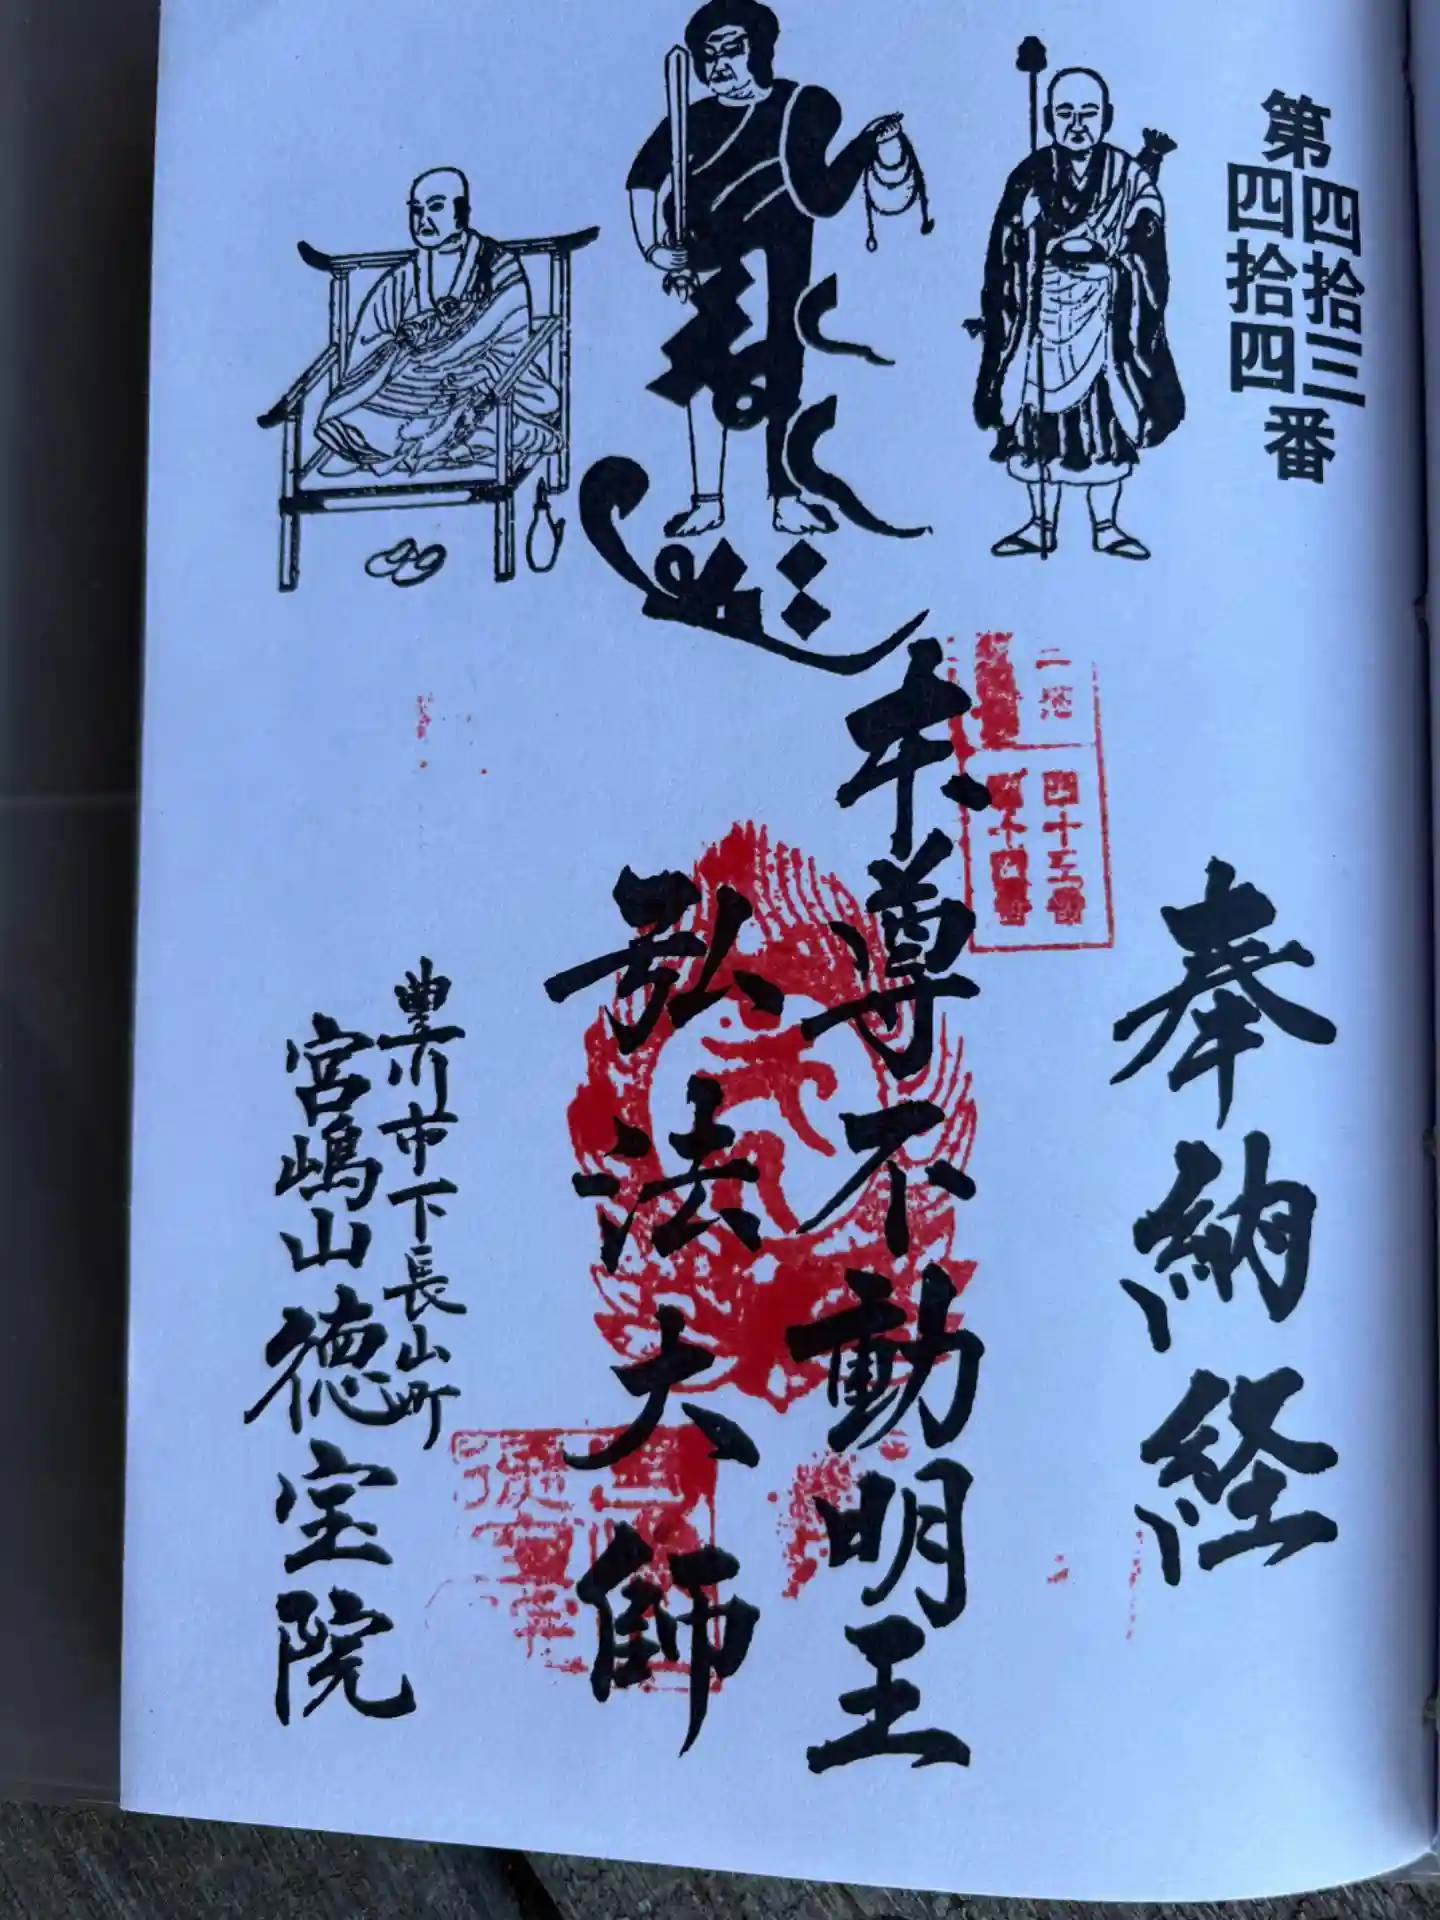 第四拾三四拾四番
奉納経
四十三番
四十四番
本尊不動明王
弘法大師
豊川市下長山町
宮嶋山徳宝院